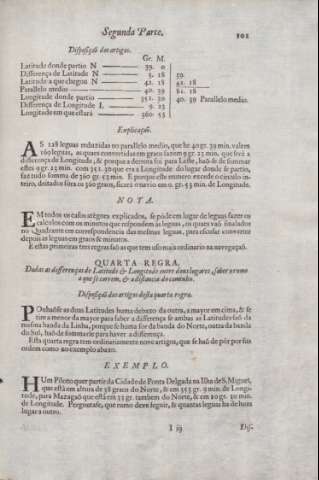 Segunda Parte. 101
Disposiçaõ dos artigos.
Gr. M.
Latitude donde partio N 39. 0
Differença de Latitude N 3. 18 39.
Latitude a que chegou N 42. 18 42. 18
Parallelo medio 40. 39 81. 18
Longitude donde partio 351. 30 40. 39 Parallelo medio.
Differença de Longitude L 9. 23
Longitude em que estará 360. 53
Explicaçaõ.
AS 128 leguas reduzidas no parallelo medio, que he 40 gr. 39 min. valem
169 leguas, as quaes convertidas em graos fazem 9 gr. 23 min. que será a
differença de Longitude, & porque a derrota foi para Leste, haõ-se de sommar
estes 9 gr. 23 min. com 351. 30 que era a Longitude do lugar donde se partio,
faz tudo somma de 360 gr. 53 min. E porque este numero excede o circulo in-
teiro, deitados fóra os 360 graos, ficará o navio em 0. gr. 53 min. de Longitude.
NOTA.
EM todos os casos atégora explicados, se póde em lugar de leguas fazer os
calculos com os minutos que respondem às leguas, ou quaes vaõ sinalados
no Quadrante em correspondencia das mesmas leguas, para escusar converter
depois as leguas em graos & minutos.
E estas primeiras tres regras saõ as que tem uso mais ordinario na navegaçaõ.
QUARTA REGRA.
Dadas as differenças de Latitude & Longitude entre dous lugares, saber o rumo
a que se correm, & a distancia do caminho.
Disposiçaõ dos artigos desta quarta regra.
POnhaõse as duas Latitudes huma debaxo da outra, a mayor em cima, & se
tira a menor da mayor para saber a differença se ambas as Latitudes saõ da
mesma banda da Linha, porque se huma for da banda do Norte, outra da banda
do Sul, haõ de sommarse para haver a differença.
Esta quarta regra tem ordinariamente nove artigos, que se haõ de pôr por sua
ordem como no exemplo abaxo.
EXEMPLO.
HUm Piloto quer partir da Cidade de Ponta Delgada na Ilha de S. Miguel,
que está em altura de 38 graos do Norte, & em 353 gr. 0 min. de Longi-
tude, para Mazagaõ que está em 33 gr. tambem do Norte, & em 20 gr. 30 min.
de Longitude. Perguntase, que rumo deve seguir, & quantas leguas ha de hum
lugar a outro.
I iij Dis-